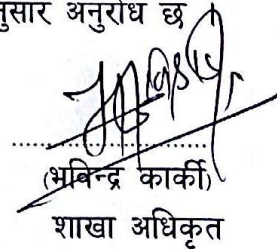 नुसार अनुरोध छ
....................
(भविन्द्र कार्की)
शाखा अधिकृत